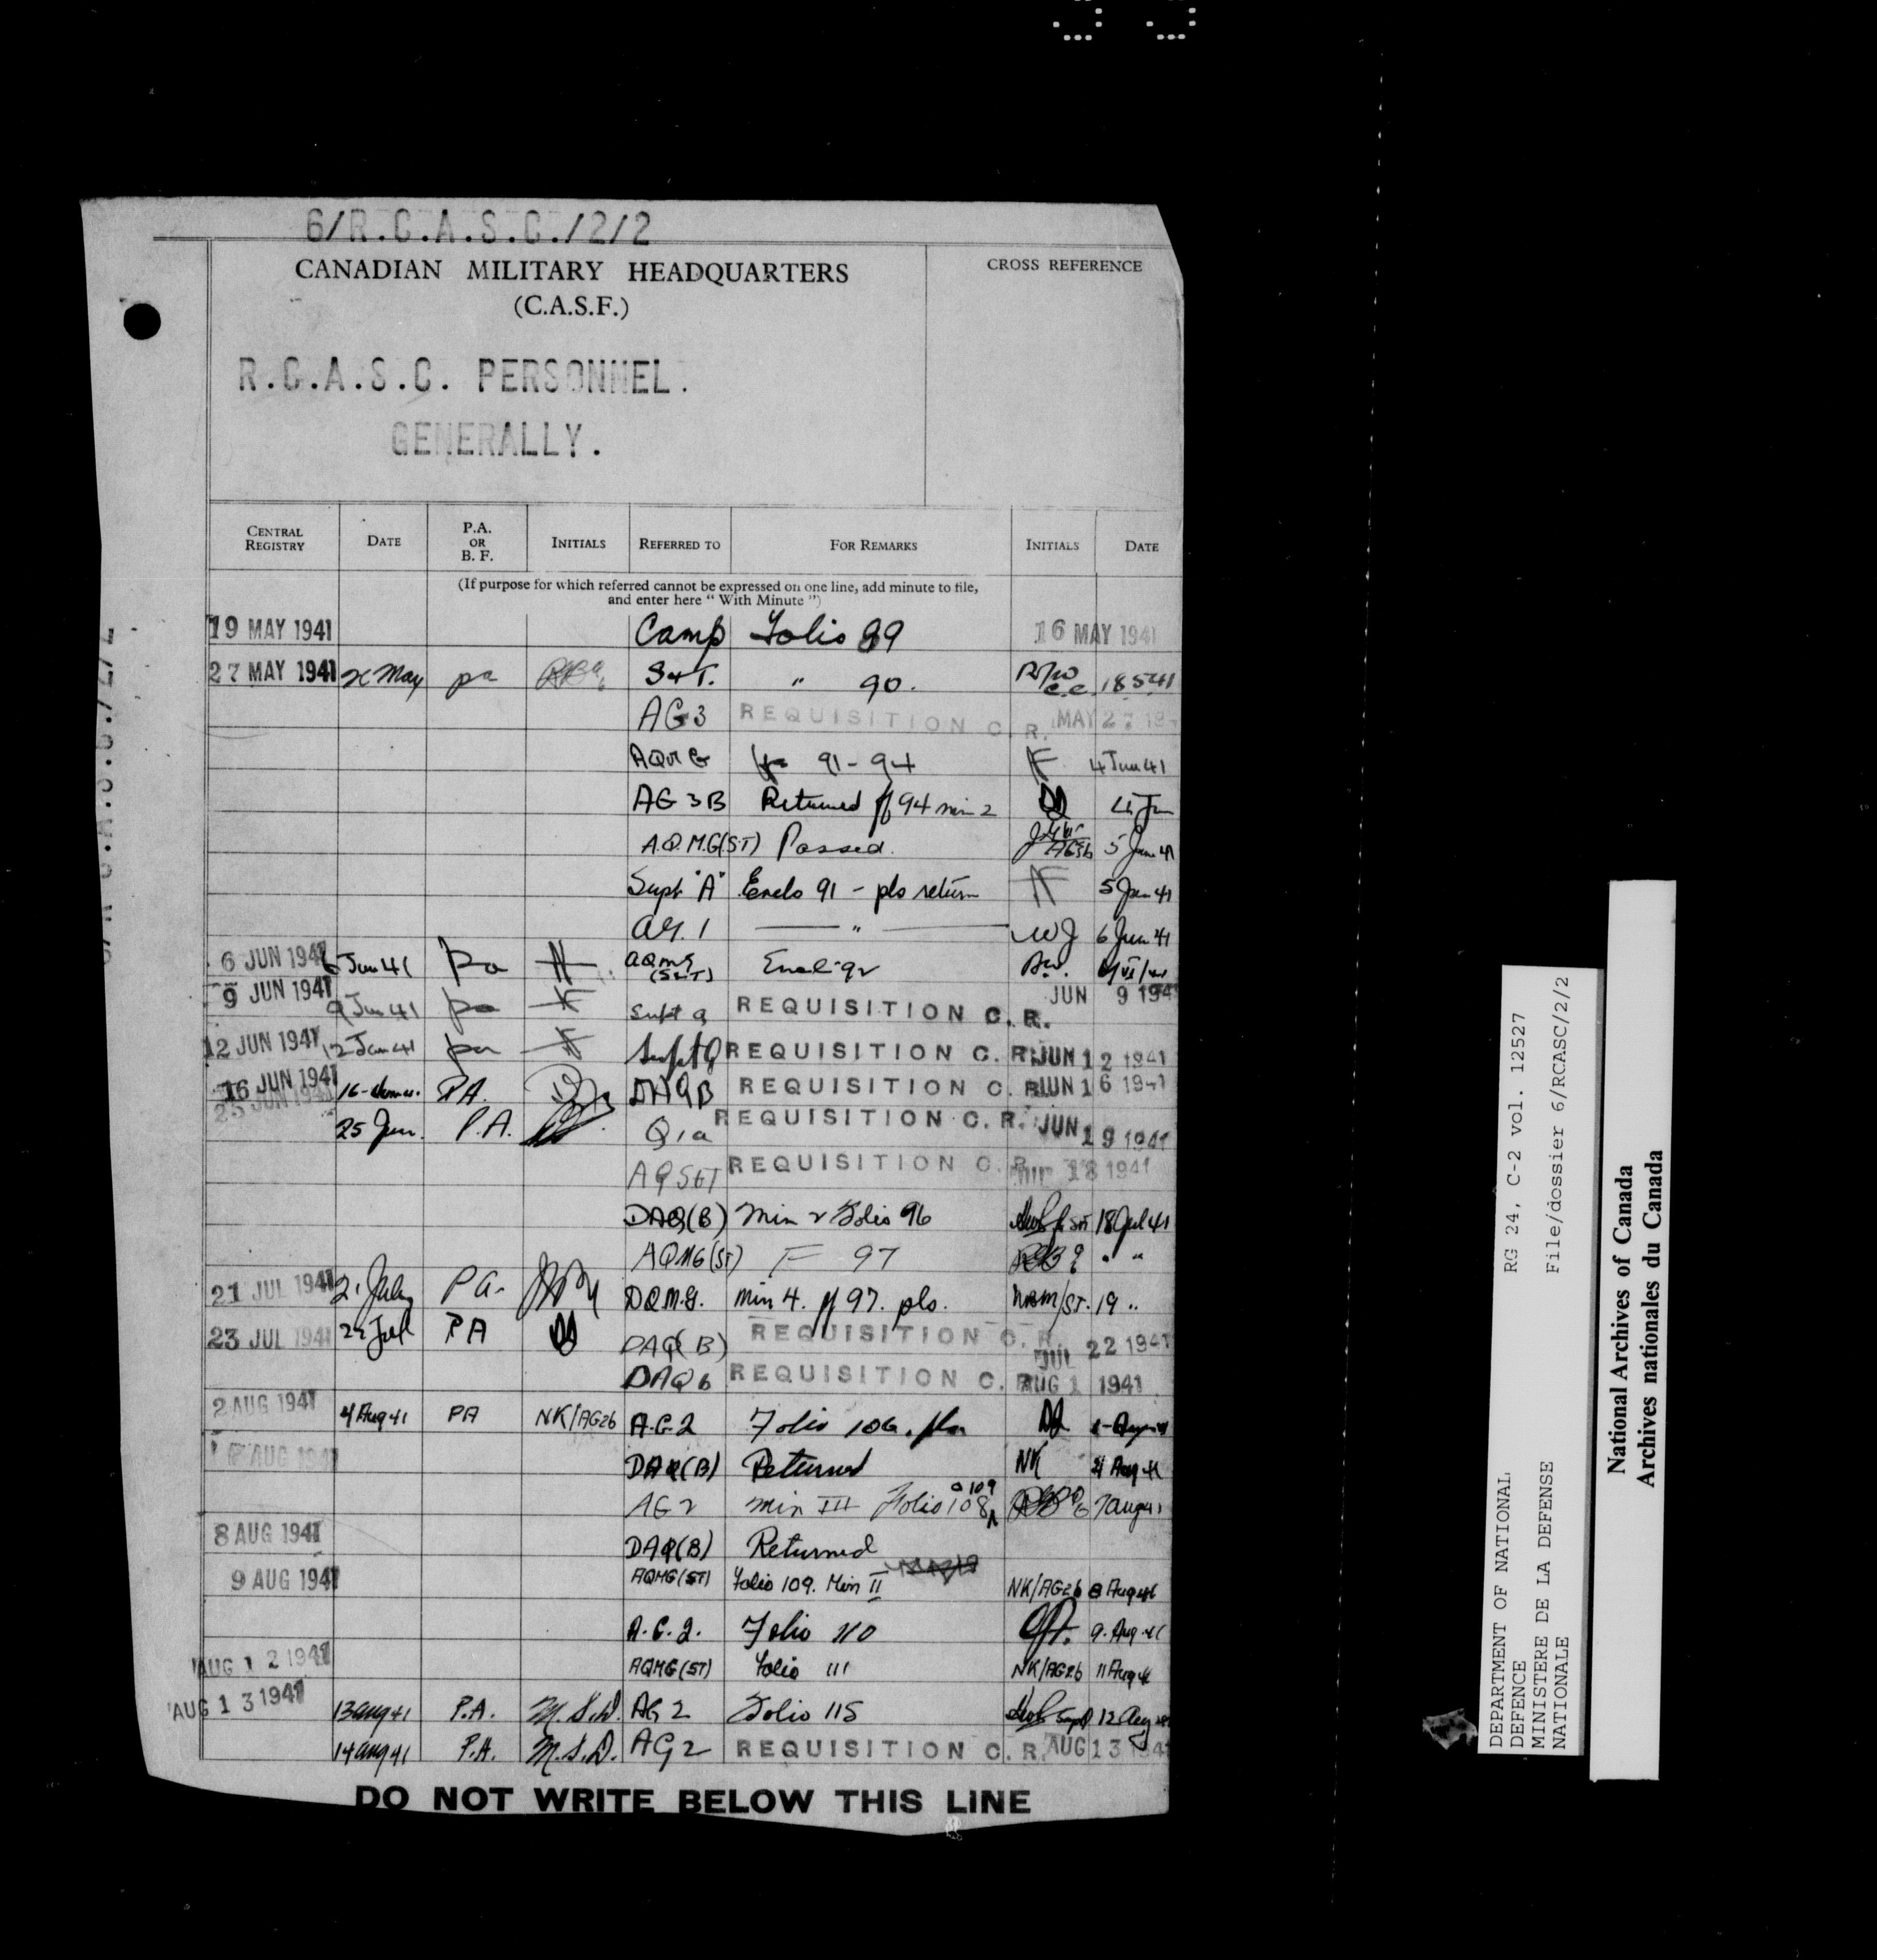 6/R.C.A.S.C./2/2
CANADIAN MILITARY HEADQUARTERS
(C.A.S.F.)
CROSS REFERENCE
R.C.A.S.C. PERSONNEL.
GENERALLY.
CENTRAL REGISTRY DATE P.A. OR B. F. INITIALS REFERRED TO FOR REMARKS INITIALS DATE
(If purpose for which referred cannot be expressed on one line, add minute to file,
and enter here " With Minute ")
19 MAY 1941 Camp Folio 89 16 MAY 1941
27 MAY 1941 May pa S&T. " 90. 18.5.41
AG3 REQUISITION C. R. MAY 27
91-94 4 Jun 41
AG 3B Returned 94 min 2 4 Jun
A.Q.M.G(S.T) Passed. 5 Jun 41
Supt "A" Enclo 91 - pls return 5 Jun 41
AG. 1 " WJ 6 Jun 41
6 JUN 1941 6 Jun 41 pa AQMG (S&T) Encl 92
9 JUN 1941 9 Jun 41 pa Supt REQUISITION C. R. JUN 9 194
12 JUN 1941 12 Jun 41 pa Supt REQUISITION C. R. JUN 12 1941
16 JUN 1941 P.A. DAQB REQUISITION C. R. JUN 16 1941
25 JUN 1941 25 Jun. P.A. Q1a REQUISITION C. R. JUN 19 1941
REQUISITION C. R. 18 1941
DAQ(B) Min 2 Folio 96 18 Jul 41
AQMG(ST) F 97 " "
21 JUL 1941 21 July PA. DQM.G. min 4. 97. pls. /ST. 19 "
23 JUL 1941 Jul PA DAQ(B) REQUISITION C. R. JUL 22 1941
DAQ6 REQUISITION C. R. AUG 1 1941
2 AUG 1941 4 Aug 41 PA NK/AG2b A.G.2 Folio 106. pls
AUG 1941 DAQ(B) Returned NK 4 Aug 41
AG 2 min III Folio 108 109 7 Aug 41
8 AUG 1941 DAQ(B) Returned
9 AUG 1941 AQMG(ST) Folio 109. Min II NK/AG2b 8 Aug 41
A.G.2. Folio 110 9. Aug. 41
AUG 12 1941 AQMG(ST) Folio 111 NK/AG2b 11 Aug 41
AUG 13 1941 13 Aug 41 P.A. M.S.D. AG 2 Folio 115 12 Aug
14 Aug 41 P.A. M.S.D. AG2 REQUISITION C. R. AUG 13 1941
DO NOT WRITE BELOW THIS LINE
DEPARTMENT OF NATIONAL
DEFENCE
MINISTERE DE LA DEFENSE
NATIONALE
RG 24, C-2 vol. 12527
File/dossier 6/RCASC/2/2
National Archives of Canada
Archives nationales du Canada